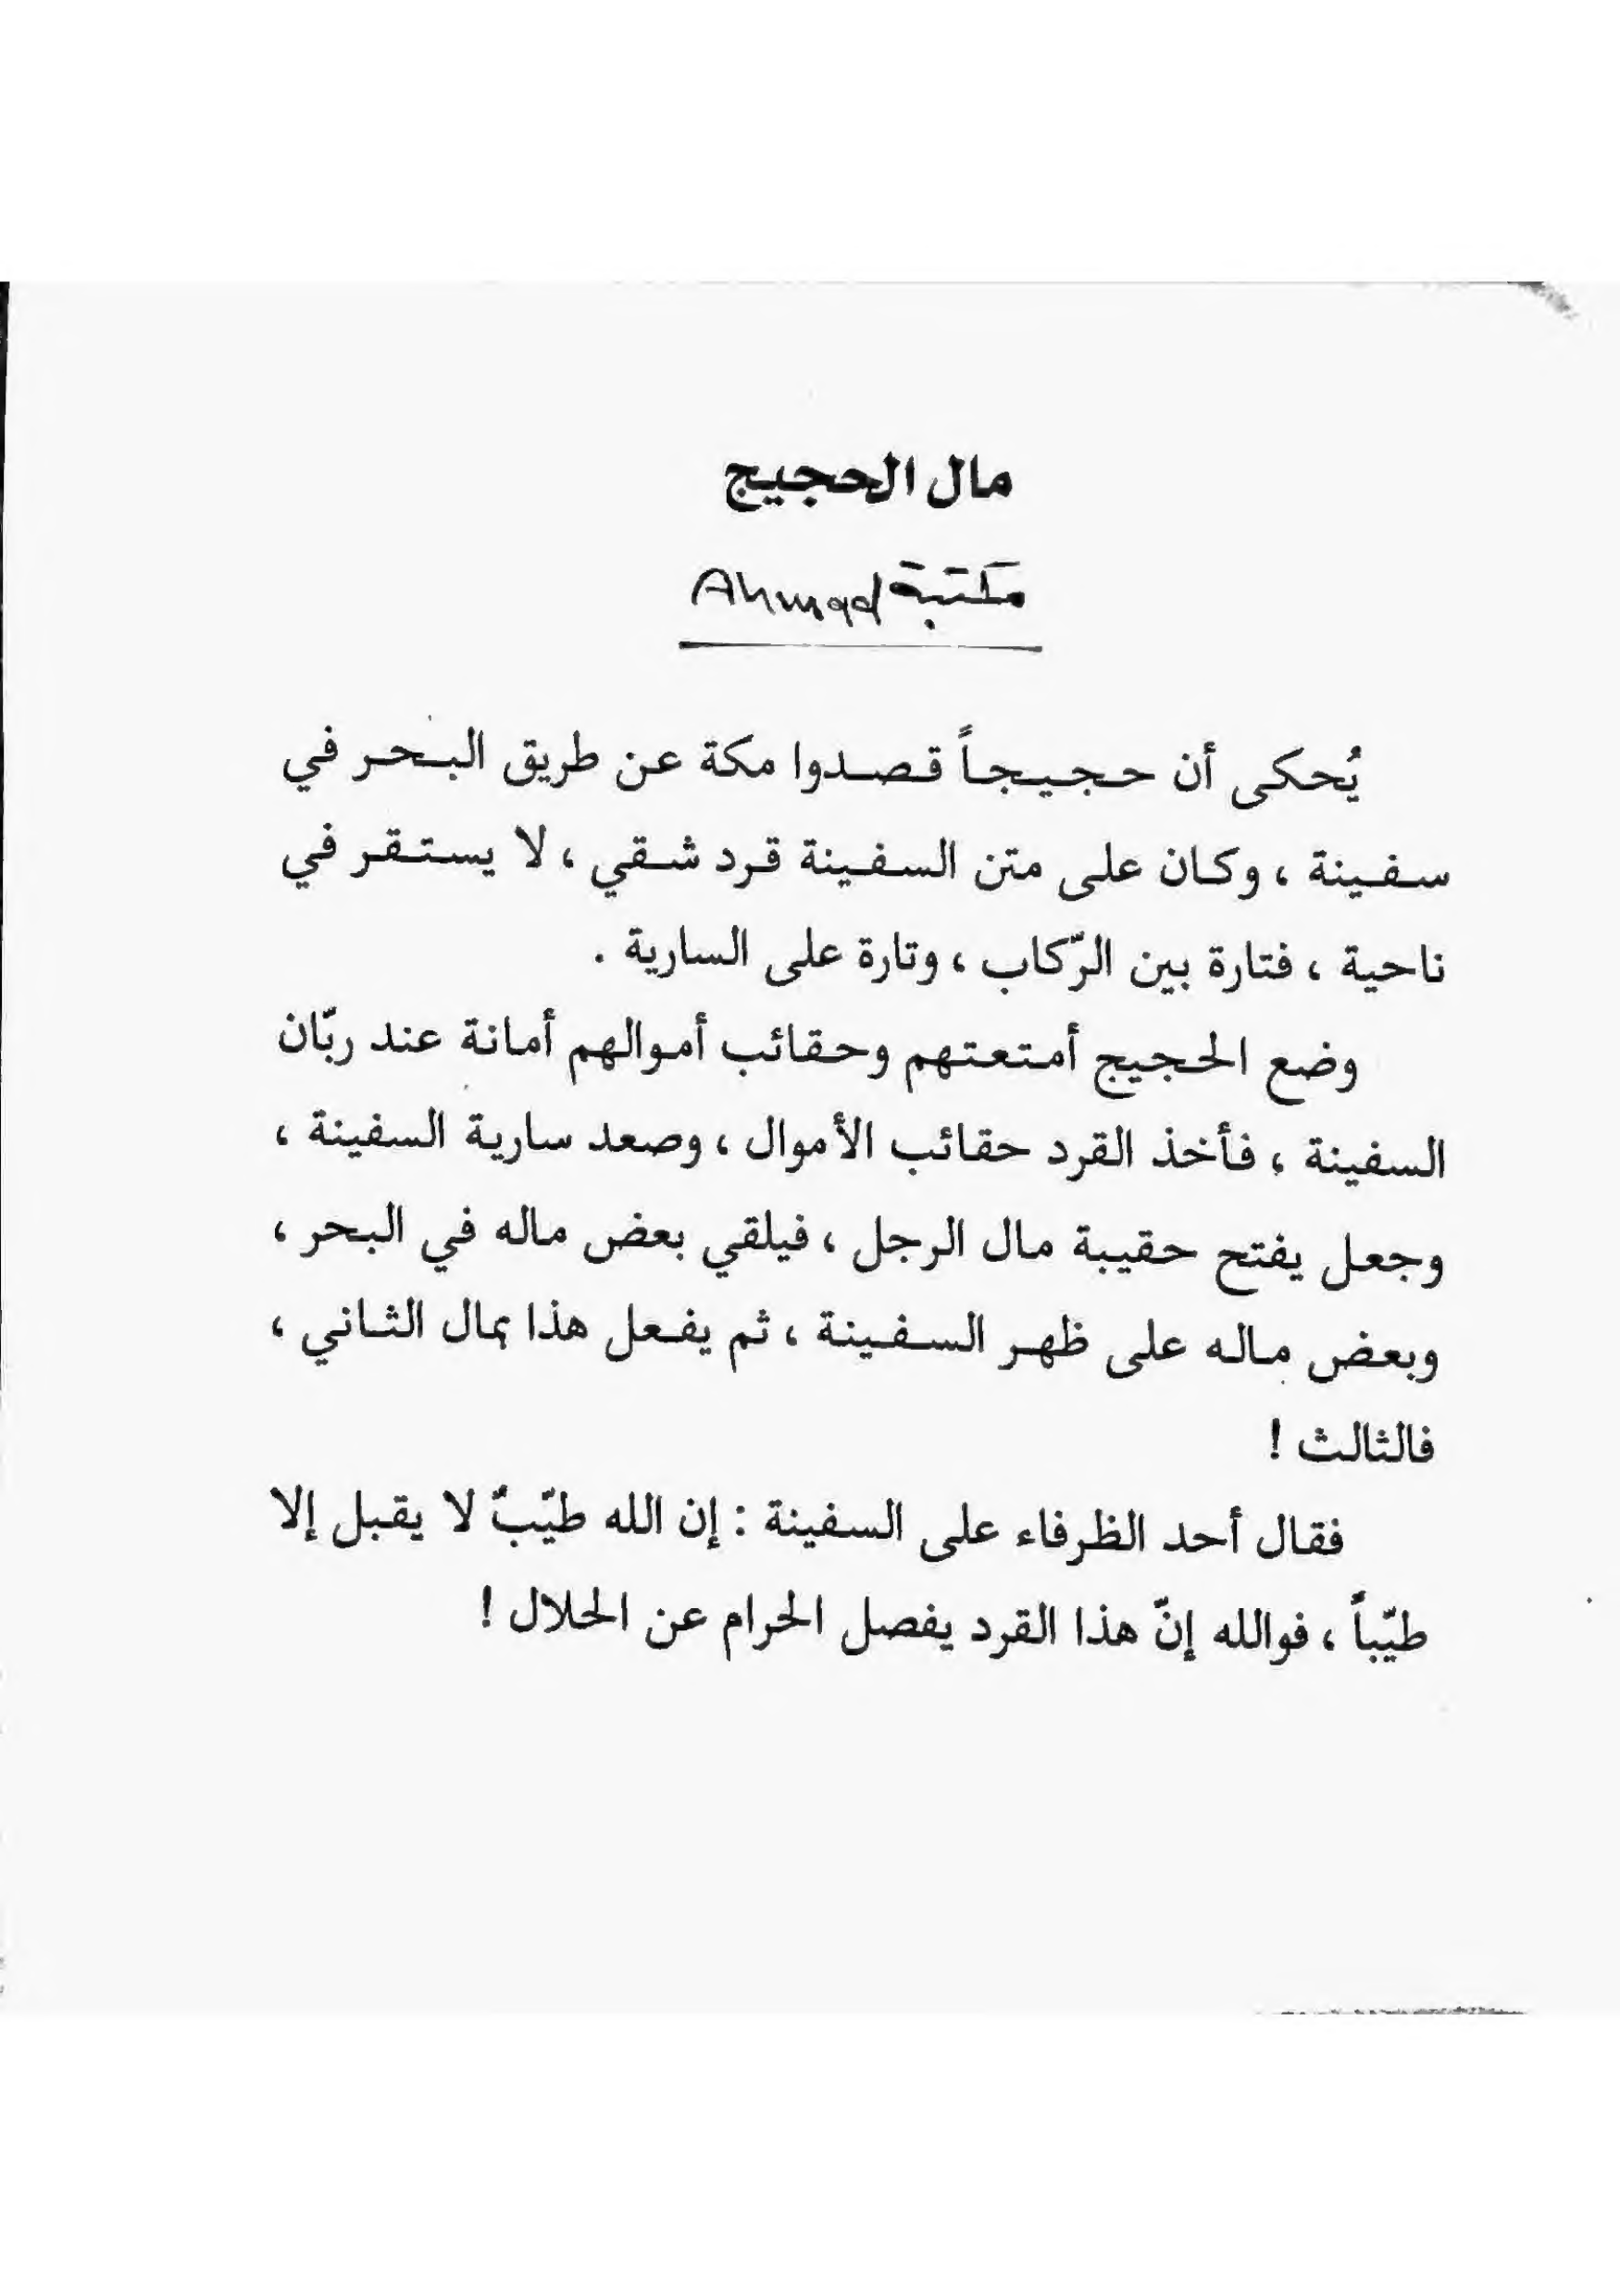 مال الحجيج
مكتبة Ahmad
يُحكى أن حجيجاً قصدوا مكة عن طريق البحر في
سفينة ، وكان على متن السفينة قرد شقي ، لا يستقر في
ناحية ، فتارة بين الرّكاب ، وتارة على السارية .
وضع الحجيج أمتعتهم وحقائب أموالهم أمانة عند ربّان
السفينة ، فأخذ القرد حقائب الأموال ، وصعد سارية السفينة ،
وجعل يفتح حقيبة مال الرجل ، فيلقي بعض ماله في البحر ،
وبعض ماله على ظهر السفينة ، ثم يفعل هذا بمال الثاني ،
فالثالث !
فقال أحد الظرفاء على السفينة : إن الله طيّبٌ لا يقبل إلا
طيّباً ، فوالله إنّ هذا القرد يفصل الحرام عن الحلال !